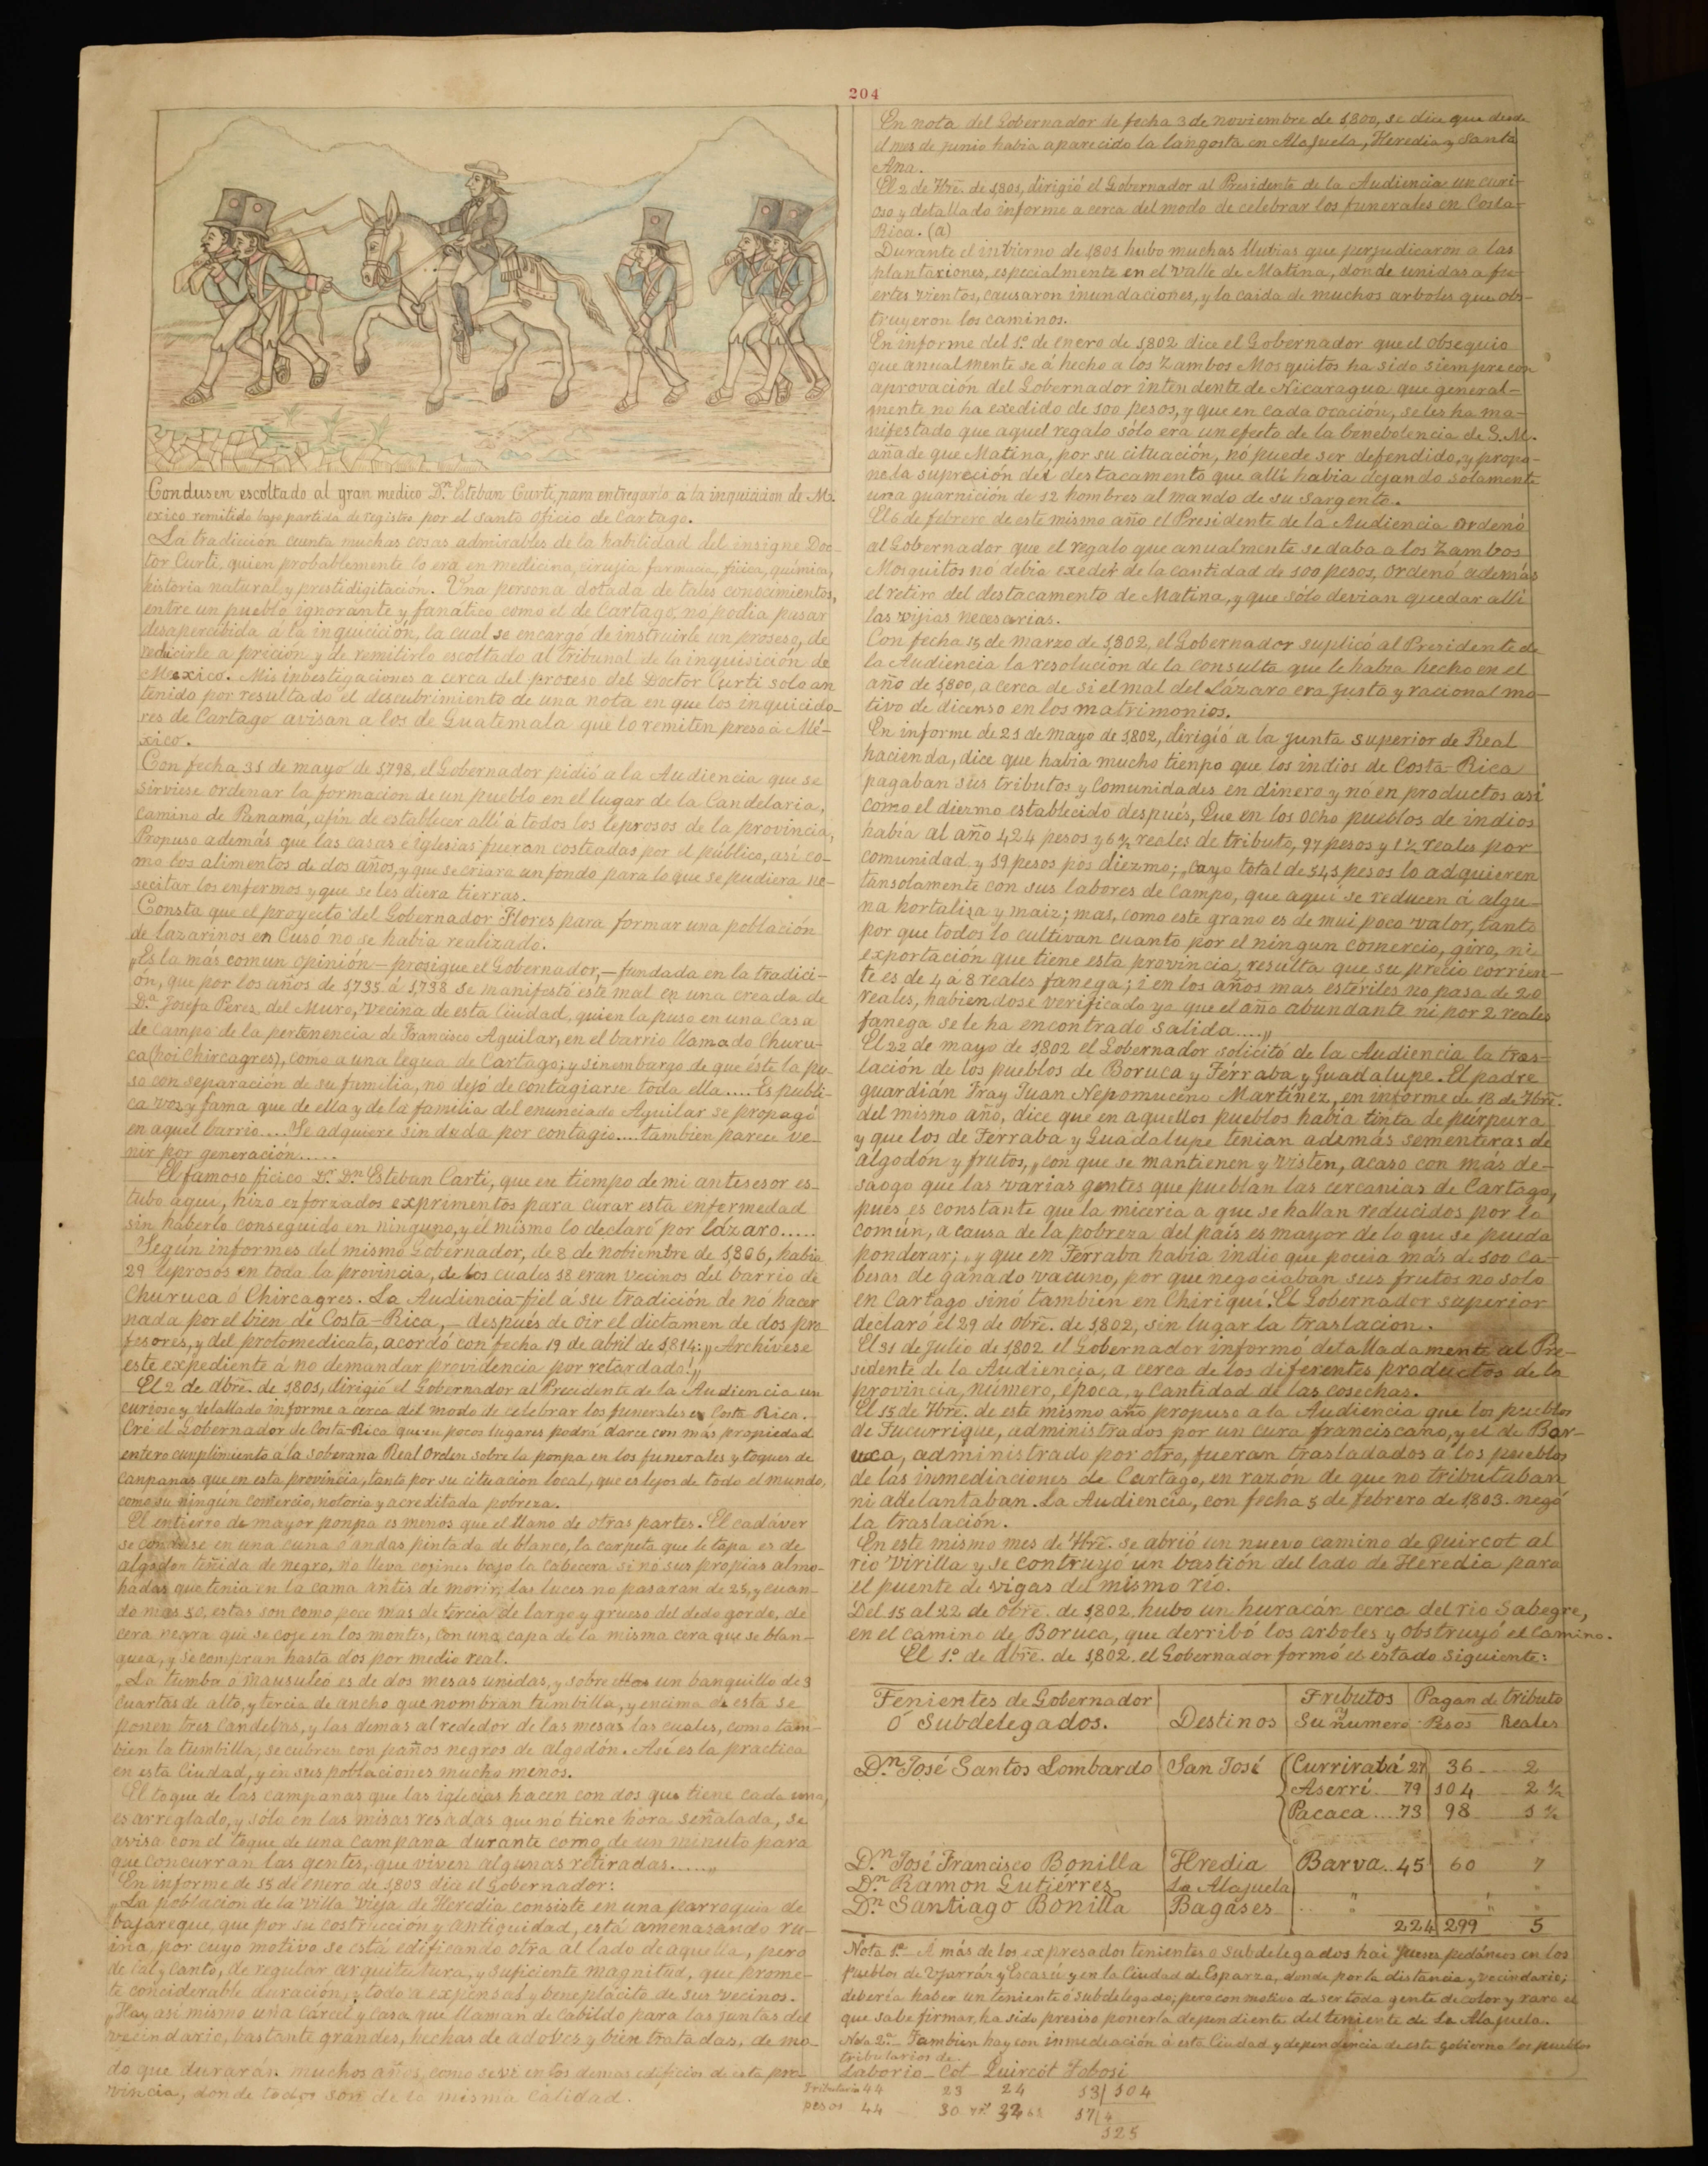 204
Condusen escoltado al gran medico Dn. Esteban Curti, para entregarlo a la inquicicion de Me-
exico remitido bajo partida de registro por el santo oficio de Cartago.
La tradicción cuenta muchas cosas admirables de la habilidad del insigne Doc-
tor Curti, quien probablemente lo era en medicina, cirujía, farmacia, ficica, química,
historia natural y prestidigitación. Una persona dotada de tales conocimientos,
entre un pueblo ignorante y fanático como el de Cartago, no podia pasar
desapercibida á la inquicición, la cual se encargó de instruirle un proseso, de
reducirle a prición y de remitirlo escoltado al tribunal de la inquisición de
Mexico. Mis inbestigaciones a cerca del proseso del Doctor Curti solo an
tenido por resultado el descubrimiento de una nota en que los inquicido-
res de Cartago avisan a los de Guatemala que lo remiten preso a Mé-
xico.
Con fecha 31 de mayo de 1798, el Gobernador pidió a la Audiencia que se
sirviese ordenar la formacion de un pueblo en el lugar de la Candelaria,
camino de Panamá, afín de establecer alli á todos los leprosos de la provincia,
Propuso además que las casas e iglesias fueran costeadas por el público, así co-
mo los alimentos de dos años, y que se criara un fondo para lo que se pudiera ne-
secitar los enfermos y que se les diera tierras.
Consta que el proyecto del Gobernador Flores para formar una población
de lazarinos en Cusó no se habia realizado.
„Es la más comun opinión — prosigue el Gobernador, — fundada en la tradici-
ón, que por los años de 1,735 á 1,738 se manifestó este mal en una creada de
Da. Josefa Peres del Muro, vecina de esta Ciudad, quien la puso en una casa
de campo de la pertenencia de Francisco Aguilar, en el barrio llamado Churu-
ca (hoi Chircagres), como a una legua de Cartago; y sinembargo de que éste la pu-
so con separación de su familia, no dejó de contagiarse toda ella..... Es publi-
ca voz y fama que de ella y de la familia del enunciado Aguilar se propagó
en aquel barrio.... Se adquiere sin duda por contagio.... tambien parece ve-
nir por generación.....
El famoso ficico Dr. Dn. Esteban Carti, que en tiempo de mi antesesor es-
tubo aqui, hizo exforzados exprimentos para curar esta enfermedad
sin haberlo conseguido en ninguno, y él mismo lo declaró por lázaro.....
Según informes del mismo Gobernador, de 8 de nobiembre de 1,806, habia
29 leprosos en toda la provincia, de los cuales 18 eran vecinos del barrio de
Churuca ó Chircagres. La Audiencia-fiel á su tradición de no hacer
nada por el bien de Costa-Rica, — después de oir el dictamen de dos pro
fesores, y del protomedicato, acordó con fecha 19 de abril de 1,814: „Archívese
este expediente á no demandar providencia por retardado!„
El 2 de dbre. de 1,801, dirigió el Gobernador al Precidente de la Audiencia un
curioso y detallado informe a cerca del modo de celebrar los funerales en Costa Rica.
Cré el Gobernador de Costa-Rica que en pocos lugares podrá darce con más propiedad
entero cumplimiento á la soberana Real Orden sobre la ponpa en los funerales y toques de
campanas que en esta provincia, tanto por su cituacion local, que es lejos de todo el mundo,
como su ningún comercio, notoria y acreditada pobreza.
El entierro de mayor ponpa es menos que el llano de otras partes. El cadáver
se conduse en una cuna ó andas pintada de blanco, la carpeta que le tapa es de
algodon teñida de negro, no lleva cojines bajo la cabecera sino sus propias almo-
hadas que tenia en la cama antes de morir, las luces no pasaran de 25, y cuan-
do mas 50, estas son como poco mas de tercia de largo y grueso del dedo gordo, de
cera negra que se coje en los montes, con una capa de la misma cera que se blan-
quea, y se compran hasta dos por medio real.
„La tumba ó mausuleo es de dos mesas unidas, y sobre ellas un banquillo de 3
cuartas de alto, y tercia de ancho que nombran tumbilla, y encima de esta se
ponen tres candelas, y las demas al rededor de las mesas las cuales, como tam-
bien la tumbilla, se cubren con paños negros de algodón. Así es la practica
en esta Ciudad, y en sus poblaciones mucho menos.
El toque de las campanas que las iglecias hacen con dos que tiene cada una,
es arreglado, y sólo en las misas resadas que nó tiene hora señalada, se
avisa con el toque de una campana durante como de un minuto para
que concurran las gentes, que viven algunas retiradas.....„
En informe de 15 de enero de 1,803 dice el Gobernador:
„La poblacion de la Villa Vieja de Heredia consiste en una parroquia de
bajareque, que por su costrucción y antiguidad, está amenasando ru-
ina, por cuyo motivo se está edificando otra al lado de aquella, pero
de cal y canto, de regular arquitectura, y suficiente magnitud, que prome-
te conciderable duración, y todo a expensas y beneplácito de sus vecinos.
„Hay así mismo una cárcel y casa que llaman de Cabildo para las juntas del
vecindario, bastante grandes, hechas de adoves y bien tratadas, de mo-
do que durarán muchos años, como se ve en los demas edificios de esta pro-
vincia, donde todos son de la misma calidad.
En nota del Gobernador de fecha 3 de noviembre de 1,800, se dice que desde
el mes de junio habia aparecido la langosta en Alajuela, Heredia y Santa
Ana.
El 2 de 7bre. de 1,801, dirigió el Gobernador al Presidente de la Audiencia un curi-
oso y detallado informe a cerca del modo de celebrar los funerales en Costa-
Rica. (a)
Durante el invierno de 1,801 hubo muchas lluvias que perjudicaron a las
plantaciones, especialmente en el valle de Matina, donde unidas a fu-
ertes vientos, causaron inundaciones, y la caida de muchos arboles que obs-
truyeron los caminos.
En informe del 1.º de enero de 1,802 dice el Gobernador que el obsequio
que anualmente se á hecho a los Zambos Mosquitos ha sido siempre con
aprovación del Gobernador intendente de Nicaragua que general-
mente no ha exedido de 100 pesos, y que en cada ocación, se les ha ma-
nifestado que aquel regalo sólo era un efecto de la benebolencia de S. M.
añade que Matina, por su cituación, no puede ser defendido, y propo-
ne la supreción del destacamento que allí habia dejando sólamente
una guarnición de 12 hombres al mando de su sargento.
El 6 de febrero de este mismo año el Presidente de la Audiencia ordenó
al Gobernador que el regalo que anualmente se daba a los Zambos
Mosquitos nó debia exeder de la cantidad de 100 pesos, ordenó además
el retiro del destacamento de Matina, y que sólo devian quedar allí
las vijias necesarias.
Con fecha 15 de marzo de 1,802, el Gobernador suplicó al Presidente de
la Audiencia la resolución de la consulta que le habia hecho en el
año de 1,800, a cerca de si el mal del Lázaro era justo y racional mo-
tivo de dicenso en los matrimonios.
En informe de 21 de mayo de 1,802, dirigió a la junta superior de Real
hacienda, dice que habia mucho tienpo que los indios de Costa-Rica
pagaban sus tributos y comunidades en dinero y no en productos así
como el diezmo establecido después, Que en los ocho pueblos de indios
había al año 424 pesos y 6½ reales de tributo, 97 pesos y 1½ reales por
comunidad y 19 pesos pos diezmo; „cuyo total de 541 pesos lo adquieren
tansolamente con sus labores de campo, que aquí se reducen á algu-
na hortaliza y maiz; mas, como este grano es de mui poco valor, tanto
por que todos lo cultivan cuanto por el ningun comercio, giro, ni
exportación que tiene esta provincia, resulta que su precio corrien-
te es de 4 a 8 reales fanega; i en los años mas estériles no pasa de 20
reales, habiendose verificado ya que el año abundante ni por 2 reales
fanega se le ha encontrado salida.....„
El 22 de mayo de 1,802 el Gobernador solicitó de la Audiencia la tras-
lación de los pueblos de Boruca y Terraba y Guadalupe. El padre
guardián Fray Juan Nepomuceno Martínez, en informe de 18 de 7bre.
del mismo año, dice que en aquellos pueblos habia tinta de púrpura
y que los de Terraba y Guadalupe tenian además sementeras de
algodón y frutos, „con que se mantienen y visten, acaso con más de-
saogo que las varias gentes que pueblan las cercanias de Cartago,
pues es constante que la miceria a que se hallan reducidos por lo
común, a causa de la pobreza del país es mayor de lo que se puede
ponderar; „y que en Terraba habia indio que poceia más de 100 ca-
besas de ganado vacuno, por que negociaban sus frutos no solo
en Cartago sinó tambien en Chiriquí. El Gobernador superior
declaró el 29 de Obre. de 1,802, sin lugar la traslacion.
El 31 de Julio de 1,802 el Gobernador informó detalladamente al Pre-
sidente de la Audiencia, a cerca de los diferentes productos de la
provincia, número, época, y cantidad de las cosechas.
El 15 de 7bre. de este mismo año propuso a la Audiencia que los pueblos
de Tucurrique, administrados por un cura franciscano, y el de Bor-
uca, administrado por otro, fueran trasladados á los pueblos
de las inmediaciones de Cartago, en razón de que no tributaban
ni adelantaban. La Audiencia, con fecha 5 de febrero de 1803. negó
la traslación.
En este mismo mes de 7bre. se abrió un nuevo camino de Quircot al
rio Virilla y se contruyó un bastión del lado de Heredia para
el puente de vigas del mismo río.
Del 15 al 22 de Obre. de 1,802 hubo un huracán cerca del rio Sabegre,
en el camino de Boruca, que derribó los arboles y obstruyó el camino.
El 1.º de dbre. de 1,802 el Gobernador formó el estado siguiente:
Tenientes de Gobernador Tributos Pagan de tributo
Ó Subdelegados. Destinos y Su numero Pesos Reales
Dn. José Santos Lombardo San José Currirabá 27 36 2
Aserrí 79 104 2 ½
Pacaca....73 98 1 ½
Dn. José Francisco Bonilla Hredia Barva..45 60 7
Dn. Ramon Gutiérres La Alajuela
Dn. Santiago Bonilla Bagases " "
224 299 5
Nota 1.ª A más de los expresados tenientes o subdelegados hai jueses pedáneos en los
pueblos de Ujarráz y Escasú y en la Ciudad de Esparza, donde por la distancia y vecindario,
deberia haber un teniente ó subdelegado; pero con motivo de ser toda gente de color y raro el
que sabe firmar, ha sido presiso ponerla dependiente del teniente de La Alajuela.
Nota 2.ª Tambien hay con inmedeación á esta Ciudad y dependencia de este gobierno los pueblos
tributarios de
Laborio - Cot - Quircot Tobosi
Tributario 44 23 24 13 104
pesos 44 30 32 17
125